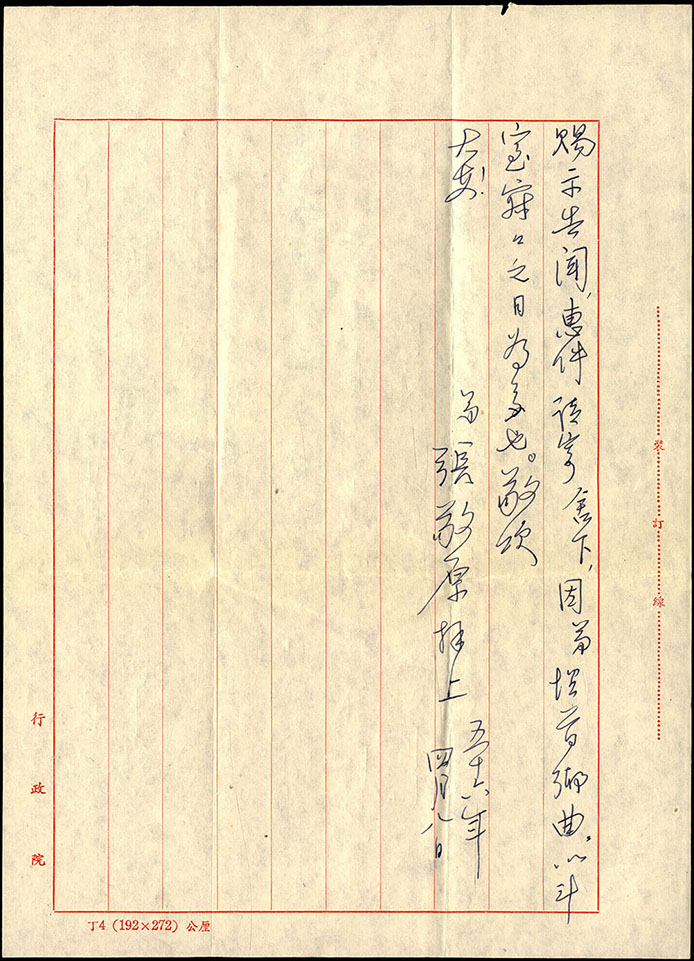 賜示告聞,惠件請寄舍下,因弟
曲。以斗
室寂々之日為多也。敬頌
大安!
弟
張敬原拜上
五十六年
四月八日
裝訂線
行政院
丁4(192×272)公厘